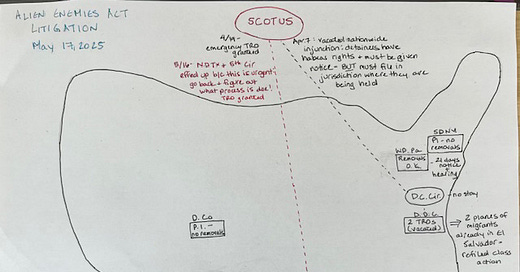 ALIEN ENEMIES ACT
LITIGATION
May 17, 2025
SCOTUS
4/19-
emergency TRO
granted
5/16- N.D.Tx + 5th Cir
effed up b/c this is urgent-
go back + figure out
what process is due!
TRO granted
Apr. 7: vacated nationwide
injunction: detainees have
habeas rights + must be given
notice - BUT must file in
jurisdiction where they are
being held
SDNY
PI - no
removals
W.D. Pa
Removals
O.K.
- 21 days
notice +
hearing
D.C. Cir.
- no stay
D.D.C
2 TROs
(vacated)
⇒ 2 planes of
migrants
already in El
Salvador -
refiled class
action
D. Co
P.I. -
no removals